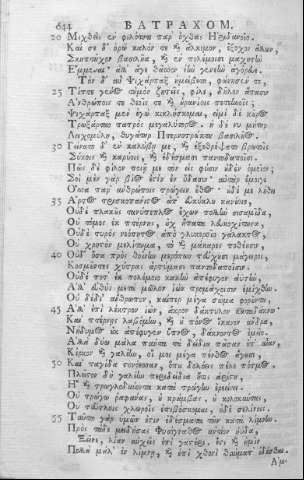 644 ΒΑΤΡΑΧΟΜ.
20 Μιχθεὶς ἐν φιλότητι παρ᾽ ὄχθας Ἠριδανοῖο.
Καὶ σὲ δ᾽ ὁρῶ καλόν τε ἄλκιμον, ἔξοχον ἄλλων,
Σκηπτοῦχον βασιλῆα, ἐν πολέμοισι μαχητὴν
Ἔμμεναι· ἀλλ᾽ ἄγε θᾶσσον ἑὴν γενεὴν ἀγόρευε.
Τὸν δ᾽ αὖ Ψιχάρπαξ ἠμείβετο, φώνησέν τε.
25 Τίπτε γένος τοὐμὸν ζητεῖς, φίλε, δῆλον ἅπασιν
Ἀνθρώποις τε θεοῖς τε οὐρανίοις πετεηνοῖς;
Ψιχάρπαξ μὲν ἐγὼ κικλήσκομαι, εἰμὶ δὲ κοῦρος
Τρωξάρταο πατρὸς μεγαλήτορος. ἡ δέ νυ μήτηρ
Λειχομύλη, θυγάτηρ Πτερνοτρώκτου βασιλῆος.
30 Γείνατο δ᾽ ἐν καλύβῃ με, ἐξεθρέψατο βρωτοῖς
Σύκοις καρύοις, ἐδέσμασι παντοδαποῖσι.
Πῶς δὲ φίλον ποιῇ με τὸν εἰς φύσιν οὐδὲν ὁμοῖον;
Σοὶ μὲν γὰρ βίος ἐστὶν ἐν ὕδασιν· αὐτὰρ ἔμοιγε
Ὅσσα παρ᾽ ἀνθρώποις τρώγειν ἔθος· οὐδέ με λήθει
35 Ἄρτος
Οὐδὲ πλακοῦς τανύπεπλος ἔχων πολὺν σισαμίδα,
Οὐ τόμος ἐκ πτέρνης, οὐχ ἥπατα λευκοχίτωνα,
Οὐδὲ τυρὸς νεόπηκτος ἀπὸ γλυκεροῖο γάλακτος,
Οὐ χρηστὸν μελίτωμα, τὸ μάκαρες ποθέουσιν,
40 Οὐδ᾽ ὅσα πρὸς θοίνας μερόπων τεύχουσι μάγειροι,
Κοσμοῦντες χύτρας ἀρτύμασι παντοδαποῖσιν.
Οὐδέ ποτ᾽ ἐκ πολέμοιο κακὴν ἀπέφευγον ἀϋτήν,
Ἀλλ᾽ εὐθὺς μετὰ μῶλον ἰὼν προμάχοισιν ἐμίχθην.
Οὐ δέδι᾽ ἄνθρωπον, καίπερ μέγα σῶμα φοροῦντα,
45 Ἀλλ᾽ ἐπὶ λέκτρον ἰών, ἄκρον δάκτυλον
Καὶ πτέρνης λαβόμην, οὐ πόνος ἵκανεν ἄνδρα,
Νήδυμος οὐκ ἀπέφευγεν ὕπνος, δάκνοντος ἐμεῖο.
Ἀλλὰ δύω μάλα πάντα τὰ δείδια πᾶσαν ἐπ᾽ αἶαν,
Κίρκον γαλέην, οἵ μοι μέγα πένθος ἄγουσι,
50 Καὶ παγίδα στονόεσσαν, ὅπου δολόεις πέλει πότμος.
Πλεῖστον δὴ γαλέην περιδείδια ἥτις ἀρίστη,
Ἣ τρωγλοδύνοντα κατὰ τρώγλην ἐρεείνει.
Οὐ τρώγω ῥαφάνας, οὐ κράμβας, οὐ κολοκύντας,
Οὐ χλωροῖς ἐπιβόσκομαι, οὐδὲ σελίνοις.
55 Ταῦτα γὰρ ὑμῶν ἐστὶν ἐδέσματα τῶν κατὰ λίμνην.
Πρὸς τάδε μειδήσας Φυσίγναθος ἀντίον ηὔδα,
Ξεῖνε, λίην αὐχεῖς ἐπὶ γαστέρι, ἔστι ἡμῖν
Πολλὰ μάλ᾽ ἐν λίμνῃ, ἐπὶ χθονὶ θαύματ᾽ ἰδέσθαι.